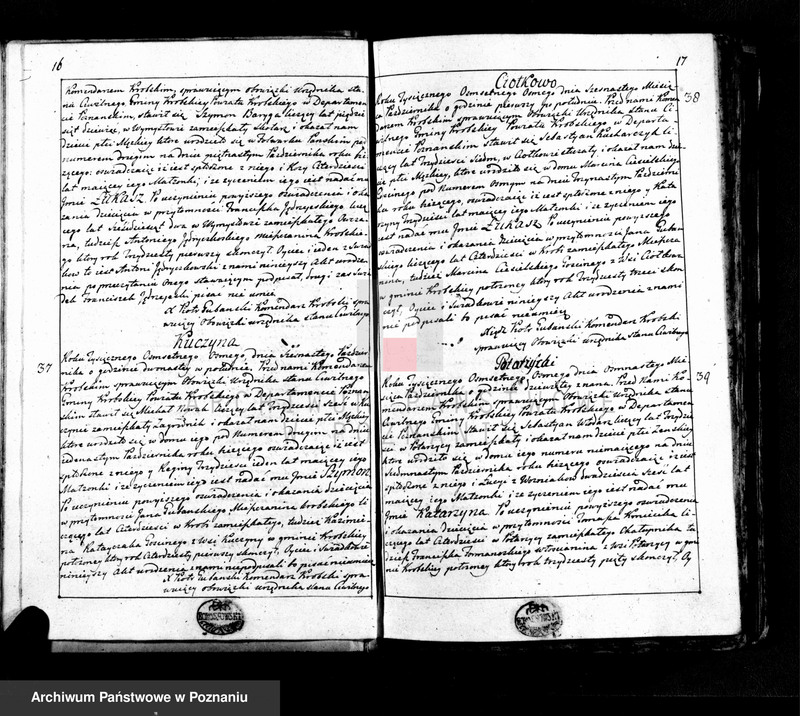 16
Komendarzem Krobskim, sprawuiącym obowiązki Urzędnika sta-
nu Cywilnego Gminy Krobskiey Powiatu Krobskiego w Departamen-
cie Poznanskim, stawił się Szymon Baryga liczący lat pięćdzie-
siąt dziewięć, w Wymysłowie zamieszkały, i okazał nam
Dziecie płci Męzkiey które urodziło się w Folwarku Panskim pod
numerem drugim na dniu piętnastym Pazdziernika roku bie-
żącego: oswiadczaiąc iż iest spłodzone z niego i Czterdziesci
lat maiącey iego Małżonki; i że życzeniem iego iest nadać mu
Jmie Łukasz Po uczynieniu powyższego oswiadczenia i oka-
zania dziecięcia w przytomności Franciszka licz-
cego lat Szesdziesiąt dwa w Wymysłowie zamieszkałego Owcza-
rza, tudzież Antoniego Mieszczanina Krobskie-
go który rok Trzydziesty pierwszy skonczył. Oyciec i ieden z Swiad-
kow to iest Antoni z nami ninieyszy Akt urodze-
nia po przeczytaniu Onego stawaiącym podpisał, drugi zas Swia-
dek Franciszek pisać nie umie
X Piotr Kubanski Komendarz Krobski spra-
wuiący Obowiązki urzędnika stanu Cywilnego
Kuczyna
37
Roku Tysiącznego Osmsetnego Osmego, dnia Szesnastego Pazdzier-
nika o godzinie dwunastey w południe. Przed nami Komendarzem
Krobskim sprawuiącym Obowiązki Urzędnika stanu Cywilnego
Gminy Krobskiey Powiatu Krobskiego w Departamencie Poznan-
skim stawił się Michał Nowak liczący lat Trzydziesci Szesc w Ku-
czynie zamieszkały Zagrodnik i okazał nam dziecie płci Męzkiey
które urodziło się w domu iego pod Numerem drugim na dniu
iedenastym Pazdziernika roku bieżącego oswiadczaiąc iż iest
spłodzone z niego y Reginy Trzydzieści ieden lat maiącey iego
Małżonki i że życzeniem iego iest nadać mu Jmie Szymon
Po uczynieniu powyższego oswiadczenia i okazania dziecięcia
w przytomności Jana Mieszczanina krobskiego li-
czącego lat Czterdziesci w Krobi zamieszkałego, tudzież Kazimie-
rza Goscinnego z Wsi Kuczyny w gminie Krobskiey
położoney który rok Czterdziesty pierwszy skonczył, Oyciec i Swiadkowie
ninieyszy Akt urodzenia z nami niepodpisali bo pisać nieumieią
X Piotr Kubanski Komendarz Krobski spra-
wuiący obowiązki urzędnika stanu Cywilnego
17
Ciołkowo
38
Roku Tysiącznego Osmsetnego Osmego dnia Szesnastego Miesią-
ca Pazdziernika o godzinie pierwszey po południu. Przed nami Komen-
darzem Krobskim sprawuiącym Obowiązki Urzędnika Stanu Cy-
wilnego Gminy Krobskiey Powiatu Krobskiego w Departa-
mencie Poznanskim stawił się Sebastyan Kucharczyk li-
czący lat Trzydziesci Siedm, w Ciołkowie i okazał nam Dzie-
cie płci Męzkiey, które urodziło się w domu Marcina Ciesielskiego
Goscinnego pod Numerem Osmym na dniu Trzynastym Pazdzierni-
ka roku bieżącego, oswiadczaiąc iż iest spłodzone z niego y Kata-
rzyny Trzydziesci lat maiącey iego Małżonki i że życzeniem iego
iest nadać mu Jmie Łukasz Po uczynieniu powyższego
oswiadczenia i okazaniu Dziecięcia w przytomności Jana
liczącego lat Czterdziesci w Krobi zamieszkałego Mieszcza-
nina, tudzież Marcina Ciesielskiego Goscinnego z Wsi Ciołkowa
w gminie Krobskiey położoney który rok Trzydziesty trzeci skon-
czył, Oyciec i Swiadkowie ninieyszy Akt urodzenia z nami
nie podpisali bo pisać nieumieią
Xiądz Piotr Kubanski Komendarz Krobski
sprawuiący Obowiązki urzędnika Stanu Cywilnego
39
Roku Tysiącznego Osmsetnego Osmego dnia Osmnastego Mie-
siąca Pazdziernika o godzinie dziewiątey z rana. Przed Nami Ko-
mendarzem Krobskim sprawuiącym Obowiązki Urzędnika stanu
Cywilnego Gminy Krobskiey Powiatu Krobskiego w Departamen-
cie Poznanskim Stawił się Sebastyan liczący lat Trzydzie-
sci w Potarzycy zamieszkały i okazał nam dziecie płci Żenskiey
które urodziło się w domu iego numeru niemaiącego na dniu
Siedmnastym Pazdziernika roku bieżącego oswiadczaiąc iż iest
spłodzone z niego i Łucyi z Wozniakow dwadziescia Szesc lat
maiącey iego Małżonki i że życzeniem iego iest nadać mu
Jmie Katarzyna Po uczynieniu powyższego oswiadczenia
i okazania dziecięcia w przytomności li-
czącego lat Czterdziesci w Potarzycy zamieszkałego Chałupnika tu-
dzież Franciszka włoscianina z Wsi Potarzycy w gmi-
nie Krobskiey położoney który rok trzydziesty piąty skonczył, Oy
Archiwum Państwowe w Poznaniu